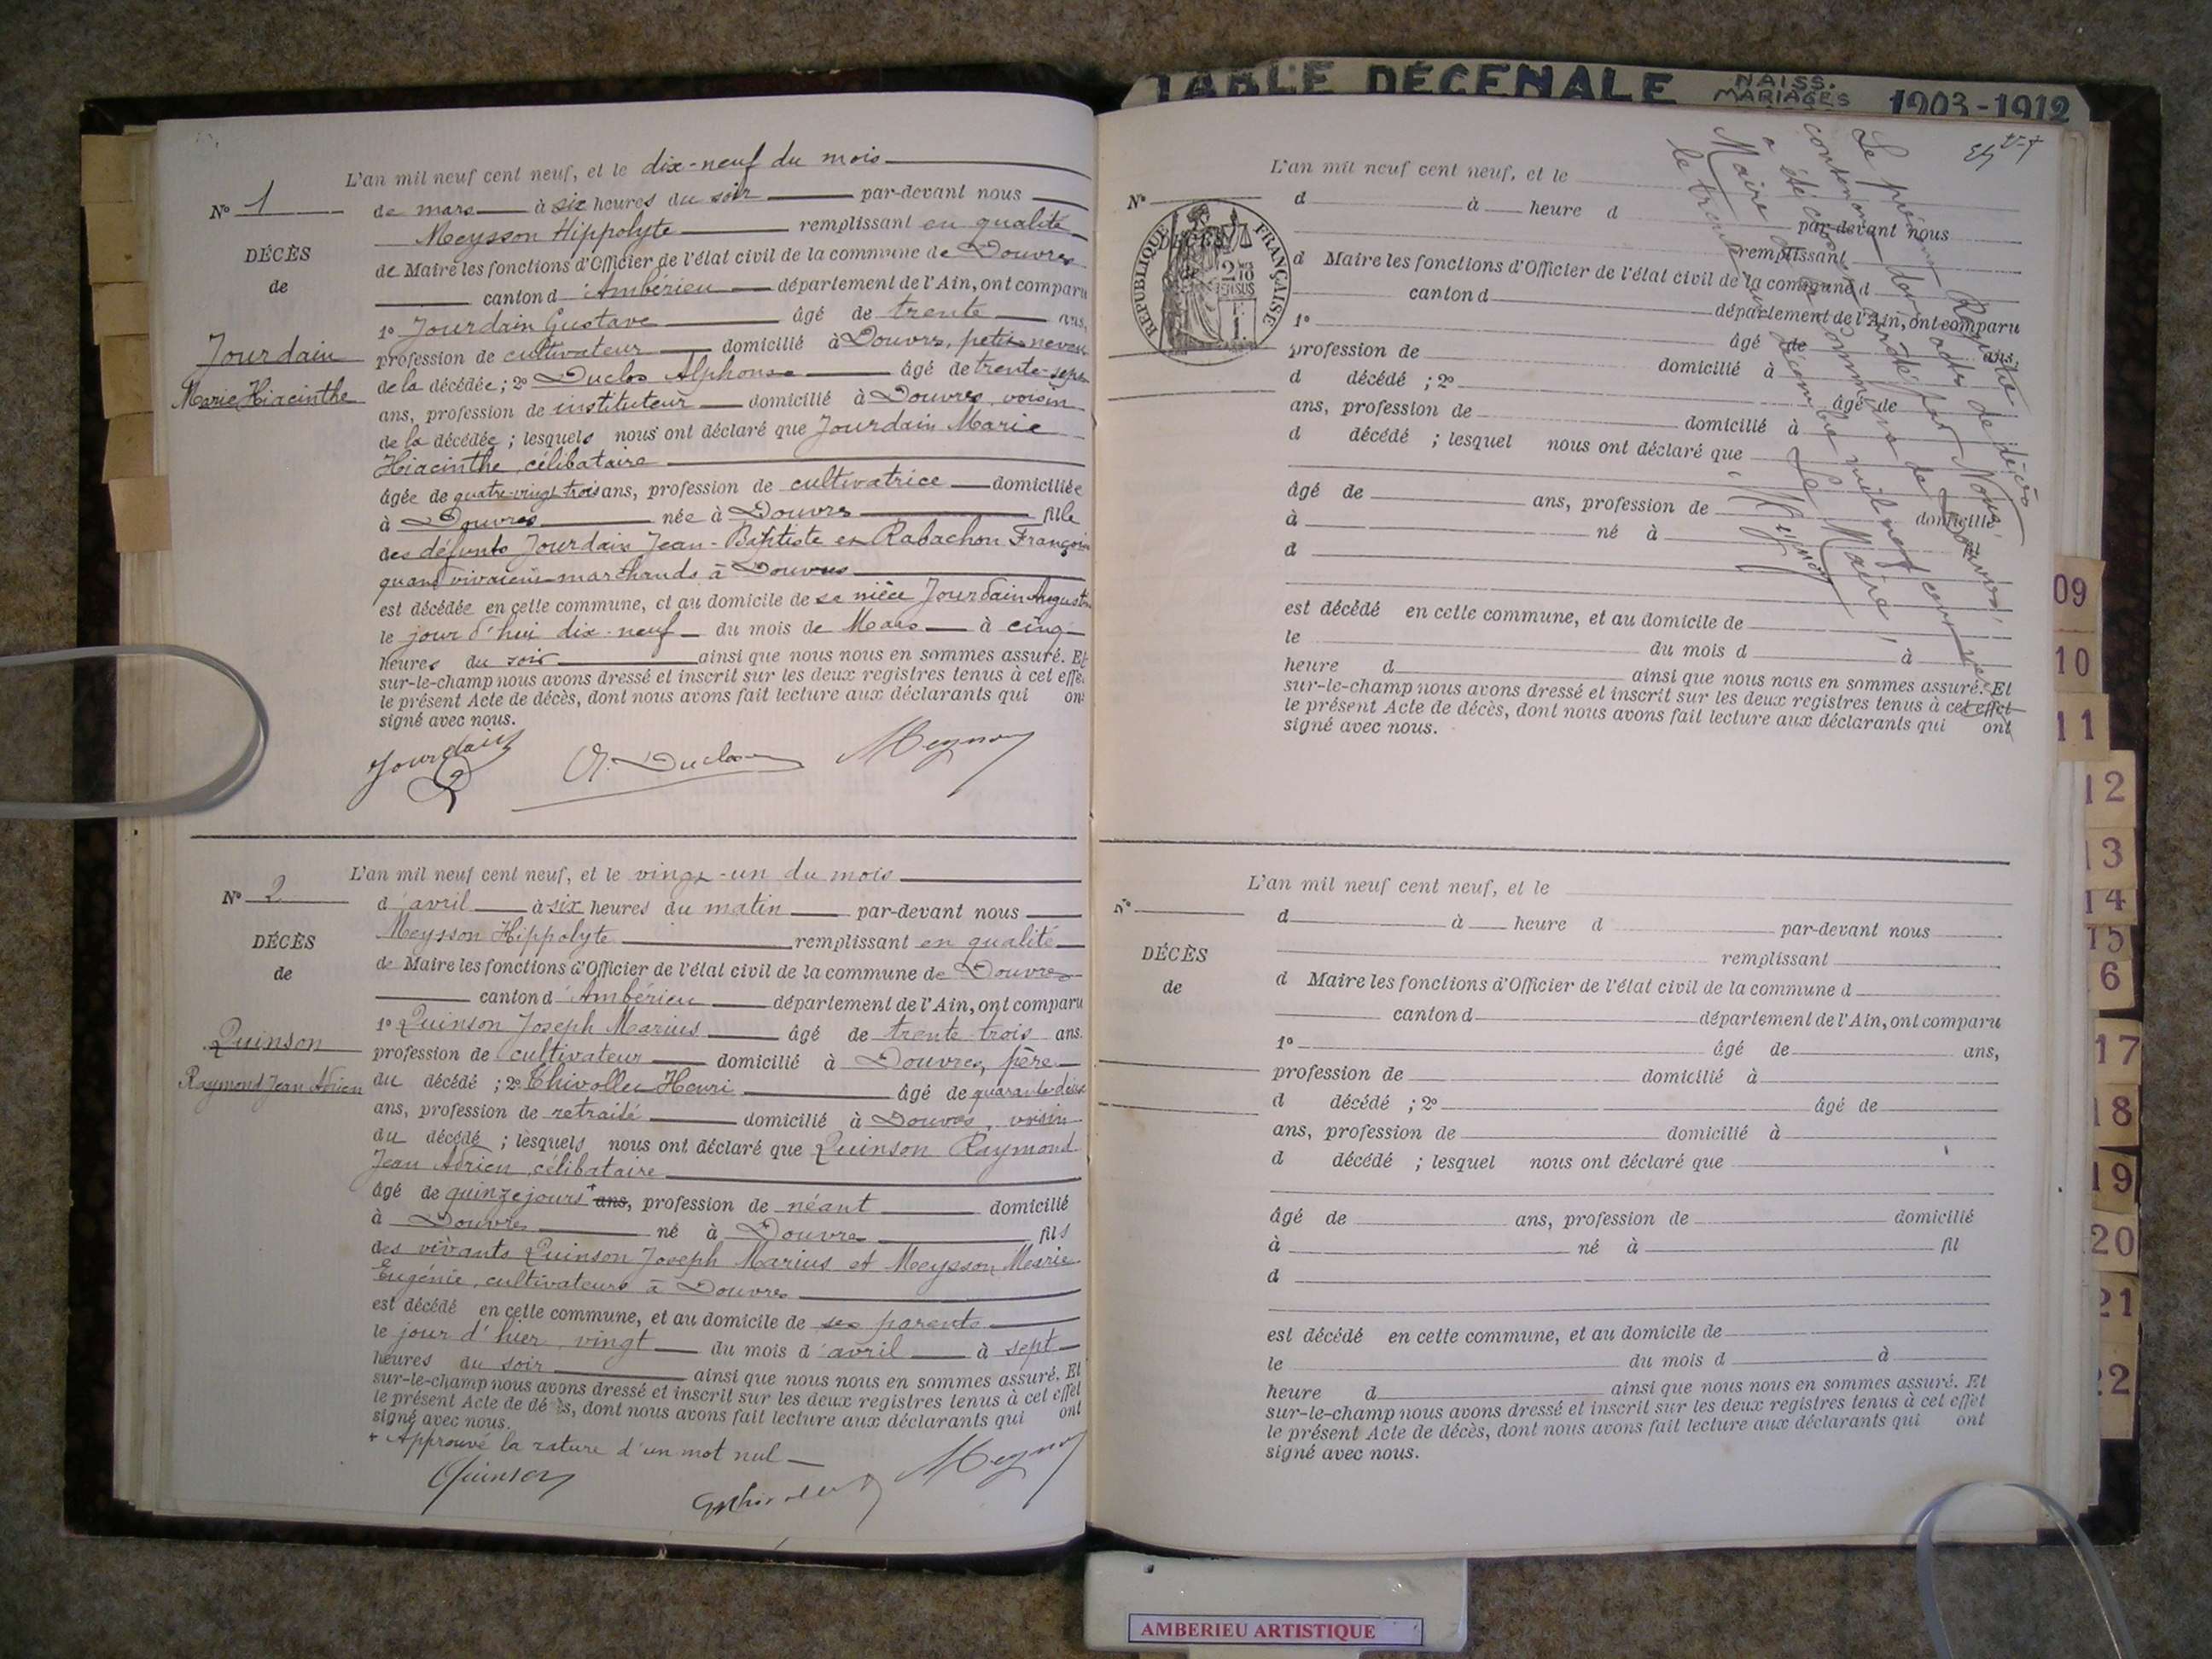 TABLE DÉCENALE NAISS. MARIAGES 1903-1912
L'an mil neuf cent neuf, et le dix-neuf du mois
N° 1
de mars à six heures du soir par-devant nous
Meysson Hippolyte remplissant en qualité
DÉCÈS
de Maire les fonctions d'Officier de l'état civil de la commune de Douvres
de
canton d'Ambérieu département de l'Ain, ont comparu
1° Jourdain Gustave âgé de trente ans,
Jourdain
profession de cultivateur domicilié à Douvres, petit neveu
Marie Hiacinthe
de la décédée ; 2° Duclos Alphonse âgé de trente-sept
ans, profession de instituteur domicilié à Douvres, voisin
de la décédée ; lesquels nous ont déclaré que Jourdain Marie
Hiacinthe, célibataire
âgée de quatre-vingt trois ans, profession de cultivatrice domiciliée
à Douvres née à Douvres fille
des défunts Jourdain Jean-Baptiste et Rabachon Françoise
quand vivaient marchands à Douvres
est décédée en cette commune, et au domicile de sa nièce Jourdain
le jour d'hui dix-neuf du mois de Mars à cinq
heures du soir ainsi que nous nous en sommes assuré. Et
sur-le-champ nous avons dressé et inscrit sur les deux registres tenus à cet effet
le présent Acte de décès, dont nous avons fait lecture aux déclarants qui ont
signé avec nous.
Jourdain A. Duclos
L'an mil neuf cent neuf, et le vingt-un du mois
N° 2
d'avril à six heures du matin par-devant nous
Meysson Hippolyte remplissant en qualité
DÉCÈS
de Maire les fonctions d'Officier de l'état civil de la commune de Douvres
de
canton d'Ambérieu département de l'Ain, ont comparu
1° Quinson Joseph Marius âgé de trente trois ans.
Quinson
profession de cultivateur domicilié à Douvres, père
Raymond Jean Adrien
du décédé ; 2° Thivollet Henri âgé de quarante deux
ans, profession de retraité domicilié à Douvres, voisin
du décédé ; lesquels nous ont déclaré que Quinson Raymond
Jean Adrien, célibataire
âgé de quinze jours + ans, profession de néant domicilié
à Douvres né à Douvres fils
des vivants Quinson Joseph Marius et Meysson Marie
Eugénie, cultivateurs à Douvres
est décédé en cette commune, et au domicile de ses parents
le jour d'hier, vingt du mois d'avril à sept
heures du soir ainsi que nous nous en sommes assuré. Et
sur-le-champ nous avons dressé et inscrit sur les deux registres tenus à cet effet
le présent Acte de décès, dont nous avons fait lecture aux déclarants qui ont
signé avec nous.
+ Approuvé la rature d'un mot nul
Quinson
L'an mil neuf cent neuf, et le
N°
d à heure d par-devant nous
remplissant
DÉCÈS
RÉPUBLIQUE FRANÇAISE
d Maire les fonctions d'Officier de l'état civil de la commune d
canton d département de l'Ain, ont comparu
1° âgé de ans,
profession de domicilié à
d décédé ; 2° âgé de
ans, profession de domicilié à
d décédé ; lesquel nous ont déclaré que
âgé de ans, profession de domicilié
à né à
d
est décédé en cette commune, et au domicile de
le du mois d à
heure d ainsi que nous nous en sommes assuré. Et
sur-le-champ nous avons dressé et inscrit sur les deux registres tenus à cet effet
le présent Acte de décès, dont nous avons fait lecture aux déclarants qui ont
signé avec nous.
Le présent Registre
contenant deux actes de décès
a été clos et arrêté par Nous,
Maire de la commune de Douvres,
le trente un décembre mil neuf cent neuf
Le Maire,
L'an mil neuf cent neuf, et le
N°
d à heure d par-devant nous
remplissant
DÉCÈS
d Maire les fonctions d'Officier de l'état civil de la commune d
de
canton d département de l'Ain, ont comparu
1° âgé de ans,
profession de domicilié à
d décédé ; 2° âgé de
ans, profession de domicilié à
d décédé ; lesquel nous ont déclaré que
âgé de ans, profession de domicilié
à né à fil
d
est décédé en cette commune, et au domicile de
le du mois d à
heure d ainsi que nous nous en sommes assuré. Et
sur-le-champ nous avons dressé et inscrit sur les deux registres tenus à cet effet
le présent Acte de décès, dont nous avons fait lecture aux déclarants qui ont
signé avec nous.
09
10
11
12
13
14
15
6
17
18
19
20
21
22
AMBERIEU ARTISTIQUE